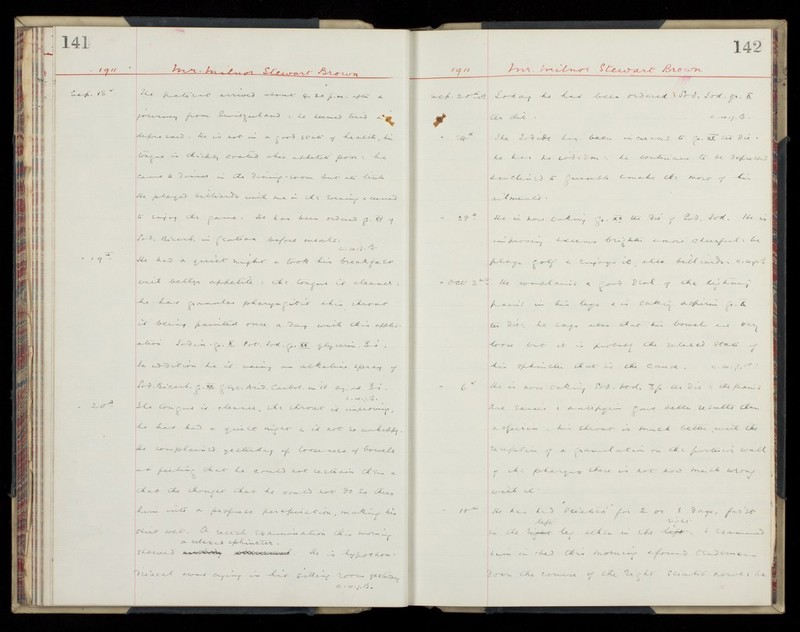 141
1911 Mr. Milnor Stewart Brown
Sep. 18th The patient arrived about 4.20 p.m. after a
journey from Switzerland: he seemed tired &
depressed. he is not in a good state of health, his
tongue is thickly coated also appetite poor: he
came to dinner in the dining-room but ate little
He played billiards with me in the evening & seemed
to enjoy the game. He has been ordered gr. of
Sod. Bicarb. in before meals.
19th He had a quiet night & took his breakfast
with better appetite: the tongue is cleaner:
he has granular pharyngitis & his throat
is being painted once a day with this appli-
cation Iodin. gr. Pot. Iod. gr. glycerin
In addition he is using an alkaline spray of
Sod. Bicarb. gr. Acid Carbol.
20th The tongue is cleaner, the throat is improving,
he has had a quiet night & is not so unhappy.
He complained yesterday of looseness of bowels
and feeling that he could not restrain them &
that the thought that he could not do so threw
him into a profuse perspiration, making his
shirt wet. A rectal examination this morning
a relaxed sphincter.
showed He is hypochon-
driacal and was crying in his sitting room yesterday
142
1911 Mr. Milnor Stewart Brown
Today he has been ordered Sod. Iod. gr.
ter die.
The Iodide has been increased to gr. ter die.
he has no: he continues to be depressed
& inclined to grumble & make the most of his
ailments.
29th He is now taking gr. ter die of Sod. Iod. He is
improving & seems brighter & more cheerful: he
plays golf & enjoys it, also billiards.
Oct. 3rd He complains a good deal of the lightning
pains in his legs & is taking aspirin gr.
ter die; he says also that his bowels are very
loose but it is probably the relaxed state of
his sphincter that is the cause.
6th He is now taking ter die: the pains
are easier & gave better results than
aspirin. his throat is much better, with the
exception of a granulation on the posterior wall
of the pharynx there is not now much wrong
with it.
10th He has had "Sciatica" for 2 or 3 days, first
left right
in the right leg then in the left. I examined
him in bed this morning & found tenderness
down the course of the right sciatic nerve: he